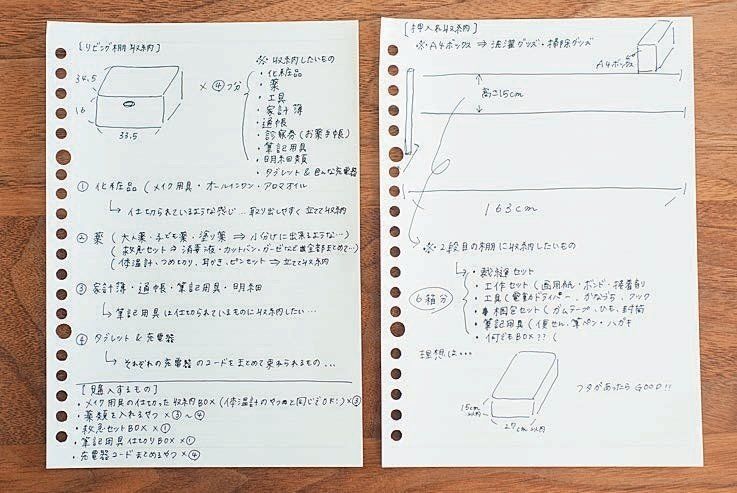 【リビング棚収納】
34.5
16
33.5
×④つ分
※収納したいもの
・化粧品
・薬
・工具
・家計簿
・通帳
・診察券(お薬手帳)
・筆記用具
・明細類
・タブレット&色んな充電器
① 化粧品 (メイク用具・オールインワン・アロマオイル
↳ 仕切られているような感じ…取り出しやすく立てて収納
② 薬 (大人薬・子ども薬・塗り薬 ⇒ 小分けに出来るような…)
(救急セット ⇒ 消毒液・カットバン・ガーゼなど全部まとめて…)
(体温計、つめきり、耳かき、ピンセット ⇒ 立てて収納
③ 家計簿・通帳・筆記用具・明細
↳ 筆記用具は仕切られているものに収納したい…
④ タブレット&充電器
↳ それぞれの充電器のコードをまとめて束ねられるもの…
【購入するもの】
・メイク用具の仕切った収納BOX (体温計のやつと同じでOK!)×③
・薬類を入れるやつ ×③〜④
・救急セットBOX ×①
・筆記用具仕切りBOX ×①
・充電器コードまとめるやつ ×④
【押入れ収納】
※A4ボックス ⇒ 洗濯グッズ・掃除グッズ
A4ボックス
高さ15cm
163cm
※2段目の棚に収納したいもの
6箱分
・裁縫セット
・工作セット(画用紙・ボンド・接着剤
・工具(電動ドライバー、かなづち、フック
・梱包セット(ガムテープ、ひも、封筒
・筆記用具(便せん、筆ペン・ハガキ
・何でもBOX??(
理想は…
15cm
以内
27cm以内
フタがあったらGOOD!!